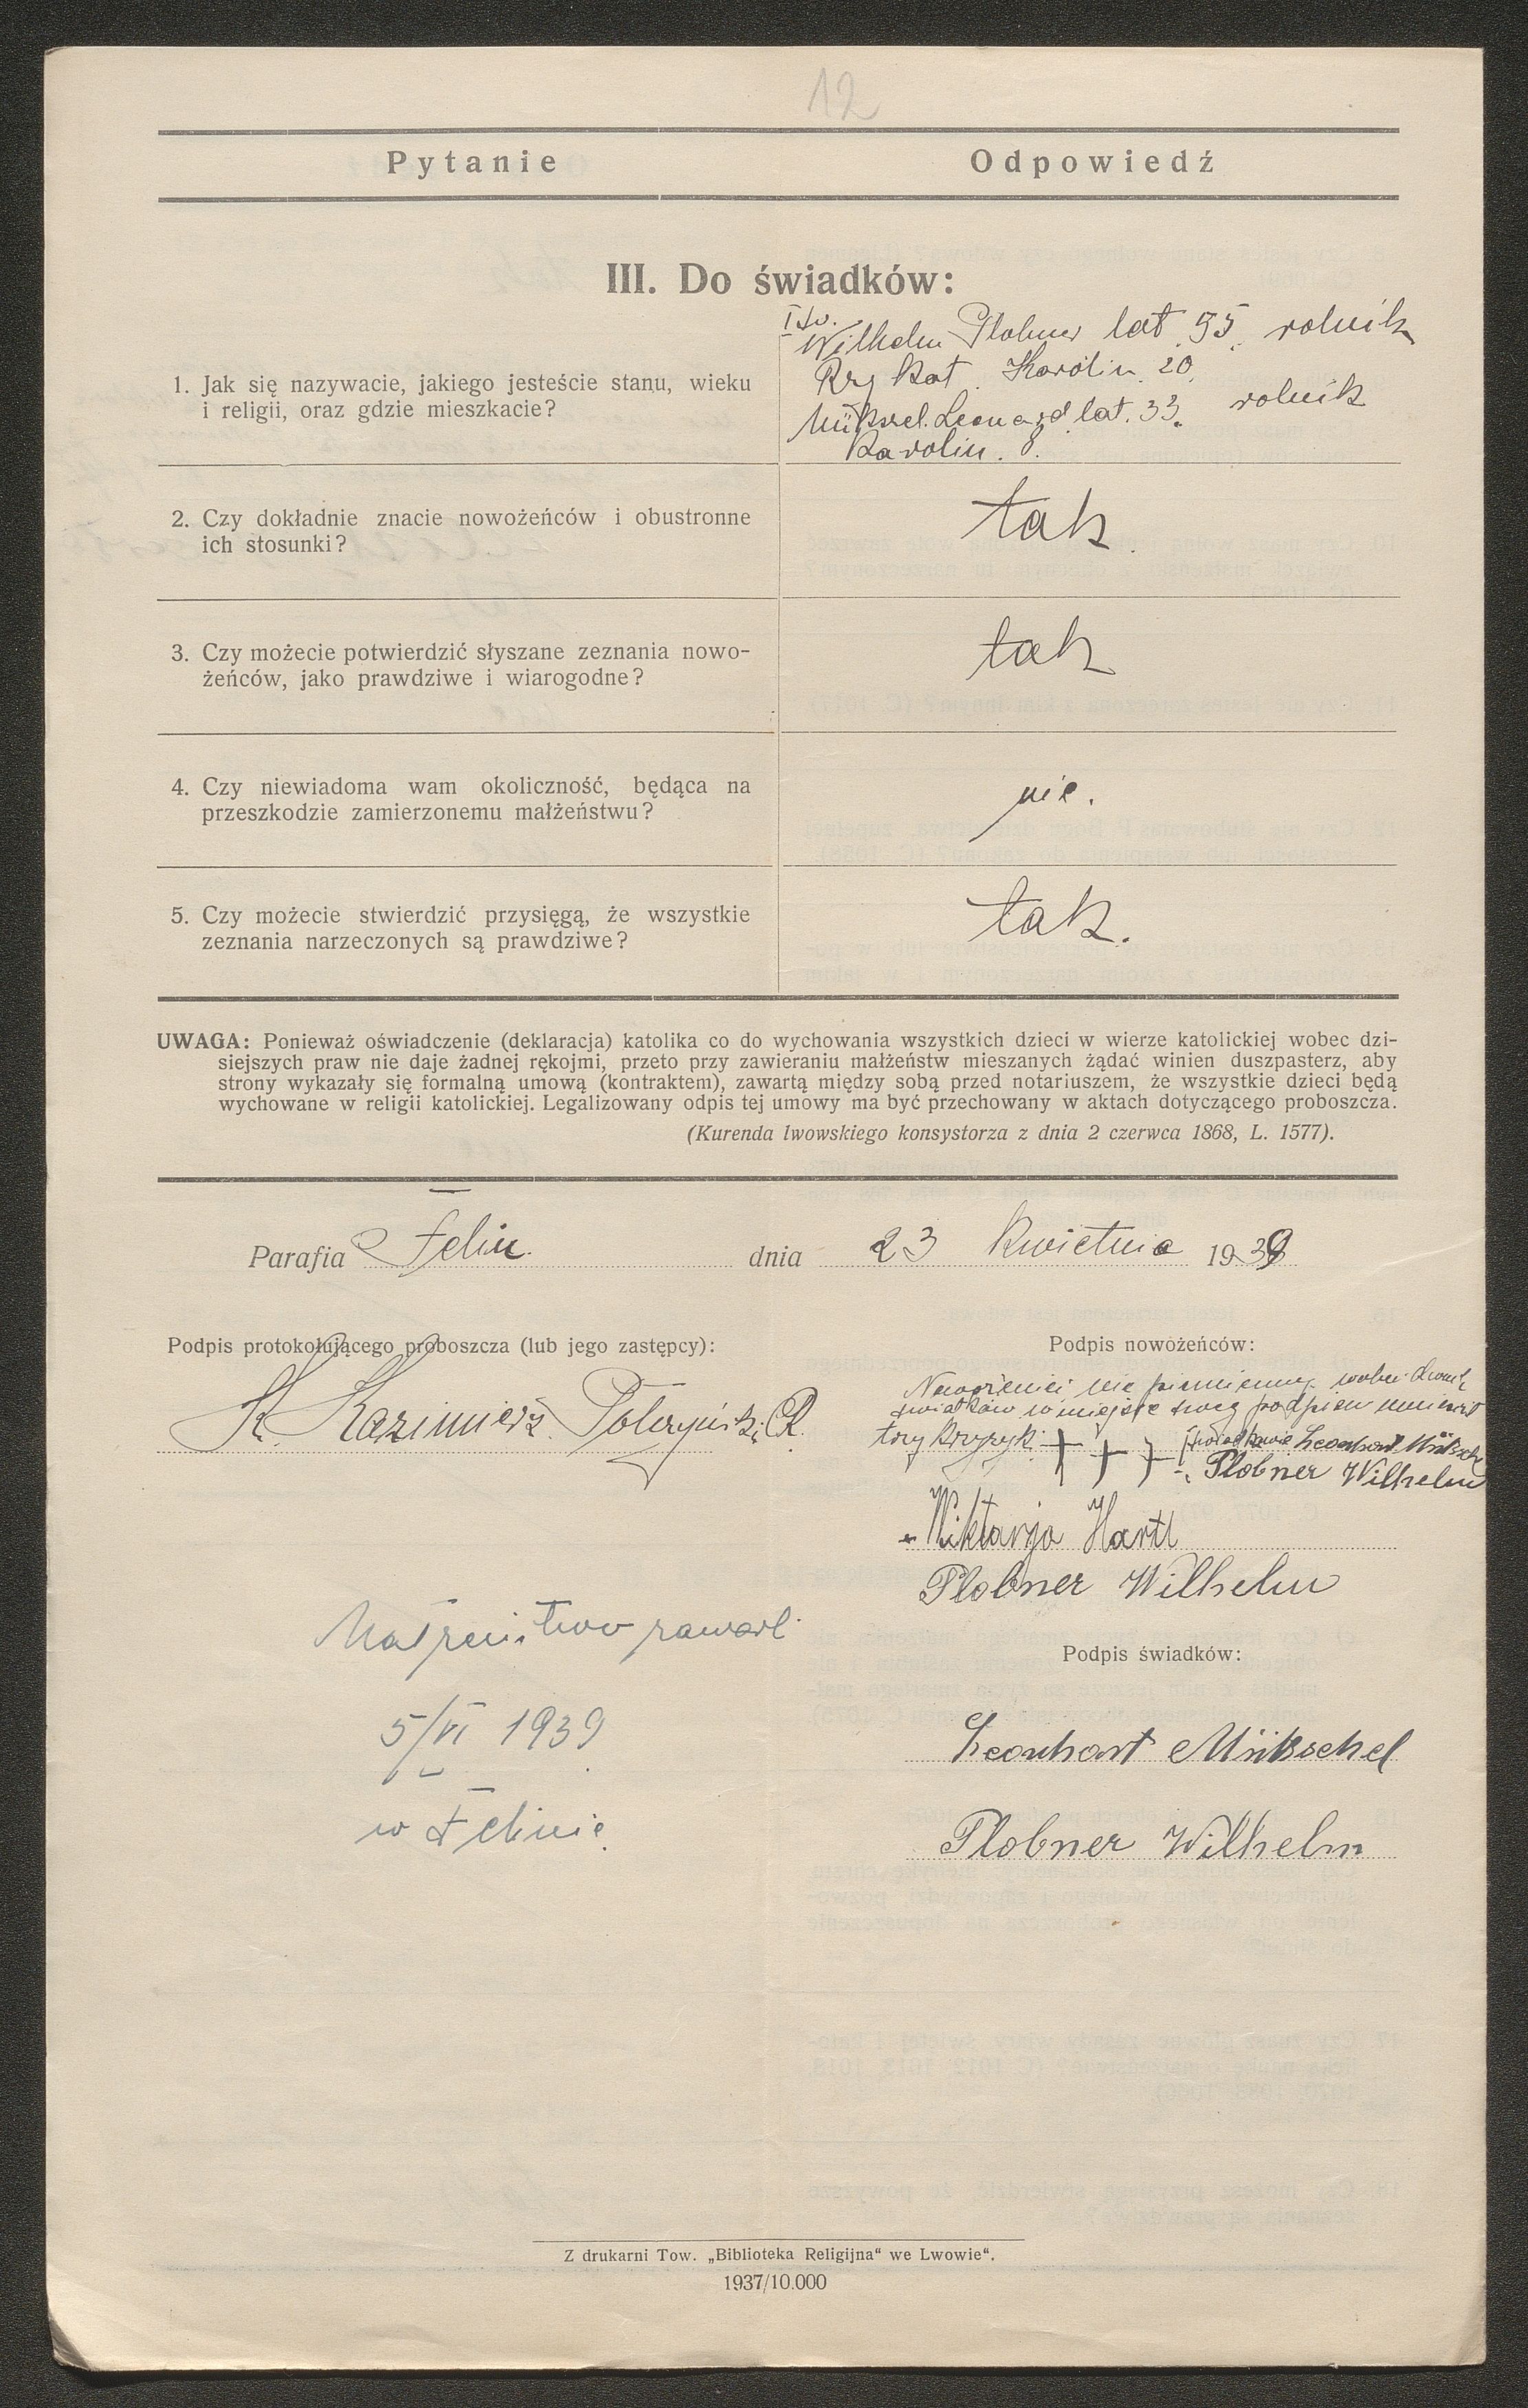 12
Pytanie Odpowiedź
III. Do świadków:
Wilhelm Plobner lat 55. rolnik
Rzy Kat. Karolin. 20.
1. Jak się nazywacie, jakiego jesteście stanu, wieku
i religii, oraz gdzie mieszkacie?
Leonard lat. 33. rolnik
Karolin. 8.
2. Czy dokładnie znacie nowożeńców i obustronne
ich stosunki?
tak.
3. Czy możecie potwierdzić słyszane zeznania nowo-
żeńców, jako prawdziwe i wiarogodne?
tak
4. Czy niewiadoma wam okoliczność, będąca na
przeszkodzie zamierzonemu małżeństwu?
nie.
5. Czy możecie stwierdzić przysięgą, że wszystkie
zeznania narzeczonych są prawdziwe?
tak.
UWAGA: Ponieważ oświadczenie (deklaracja) katolika co do wychowania wszystkich dzieci w wierze katolickiej wobec dzi-
siejszych praw nie daje żadnej rękojmi, przeto przy zawieraniu małżeństw mieszanych żądać winien duszpasterz, aby
strony wykazały się formalną umową (kontraktem), zawartą między sobą przed notariuszem, że wszystkie dzieci będą
wychowane w religii katolickiej. Legalizowany odpis tej umowy ma być przechowany w aktach dotyczącego proboszcza.
(Kurenda lwowskiego konsystorza z dnia 2 czerwca 1868, L. 1577).
Parafia Felin. dnia 23 Kwietnia 1939
Podpis protokołującego proboszcza (lub jego zastępcy):
X. Kazimierz
Podpis nowożeńców:
Nowożeńcy nie piśmienny wobec dwoch
świadków w miejsce swego podpisu
trzy krzyzyki + + + świadkowie Leonhart Mükschel
Plobner Wilhelm
Wiktorja Hartl
Plobner Wilhelm
Małżeństwo zawarl
5/VI 1939
w Felinie.
Podpis świadków:
Leonhart Mükschel
Plobner Wilhelm
Z drukarni Tow. „Biblioteka Religijna“ we Lwowie“.
1937/10.000